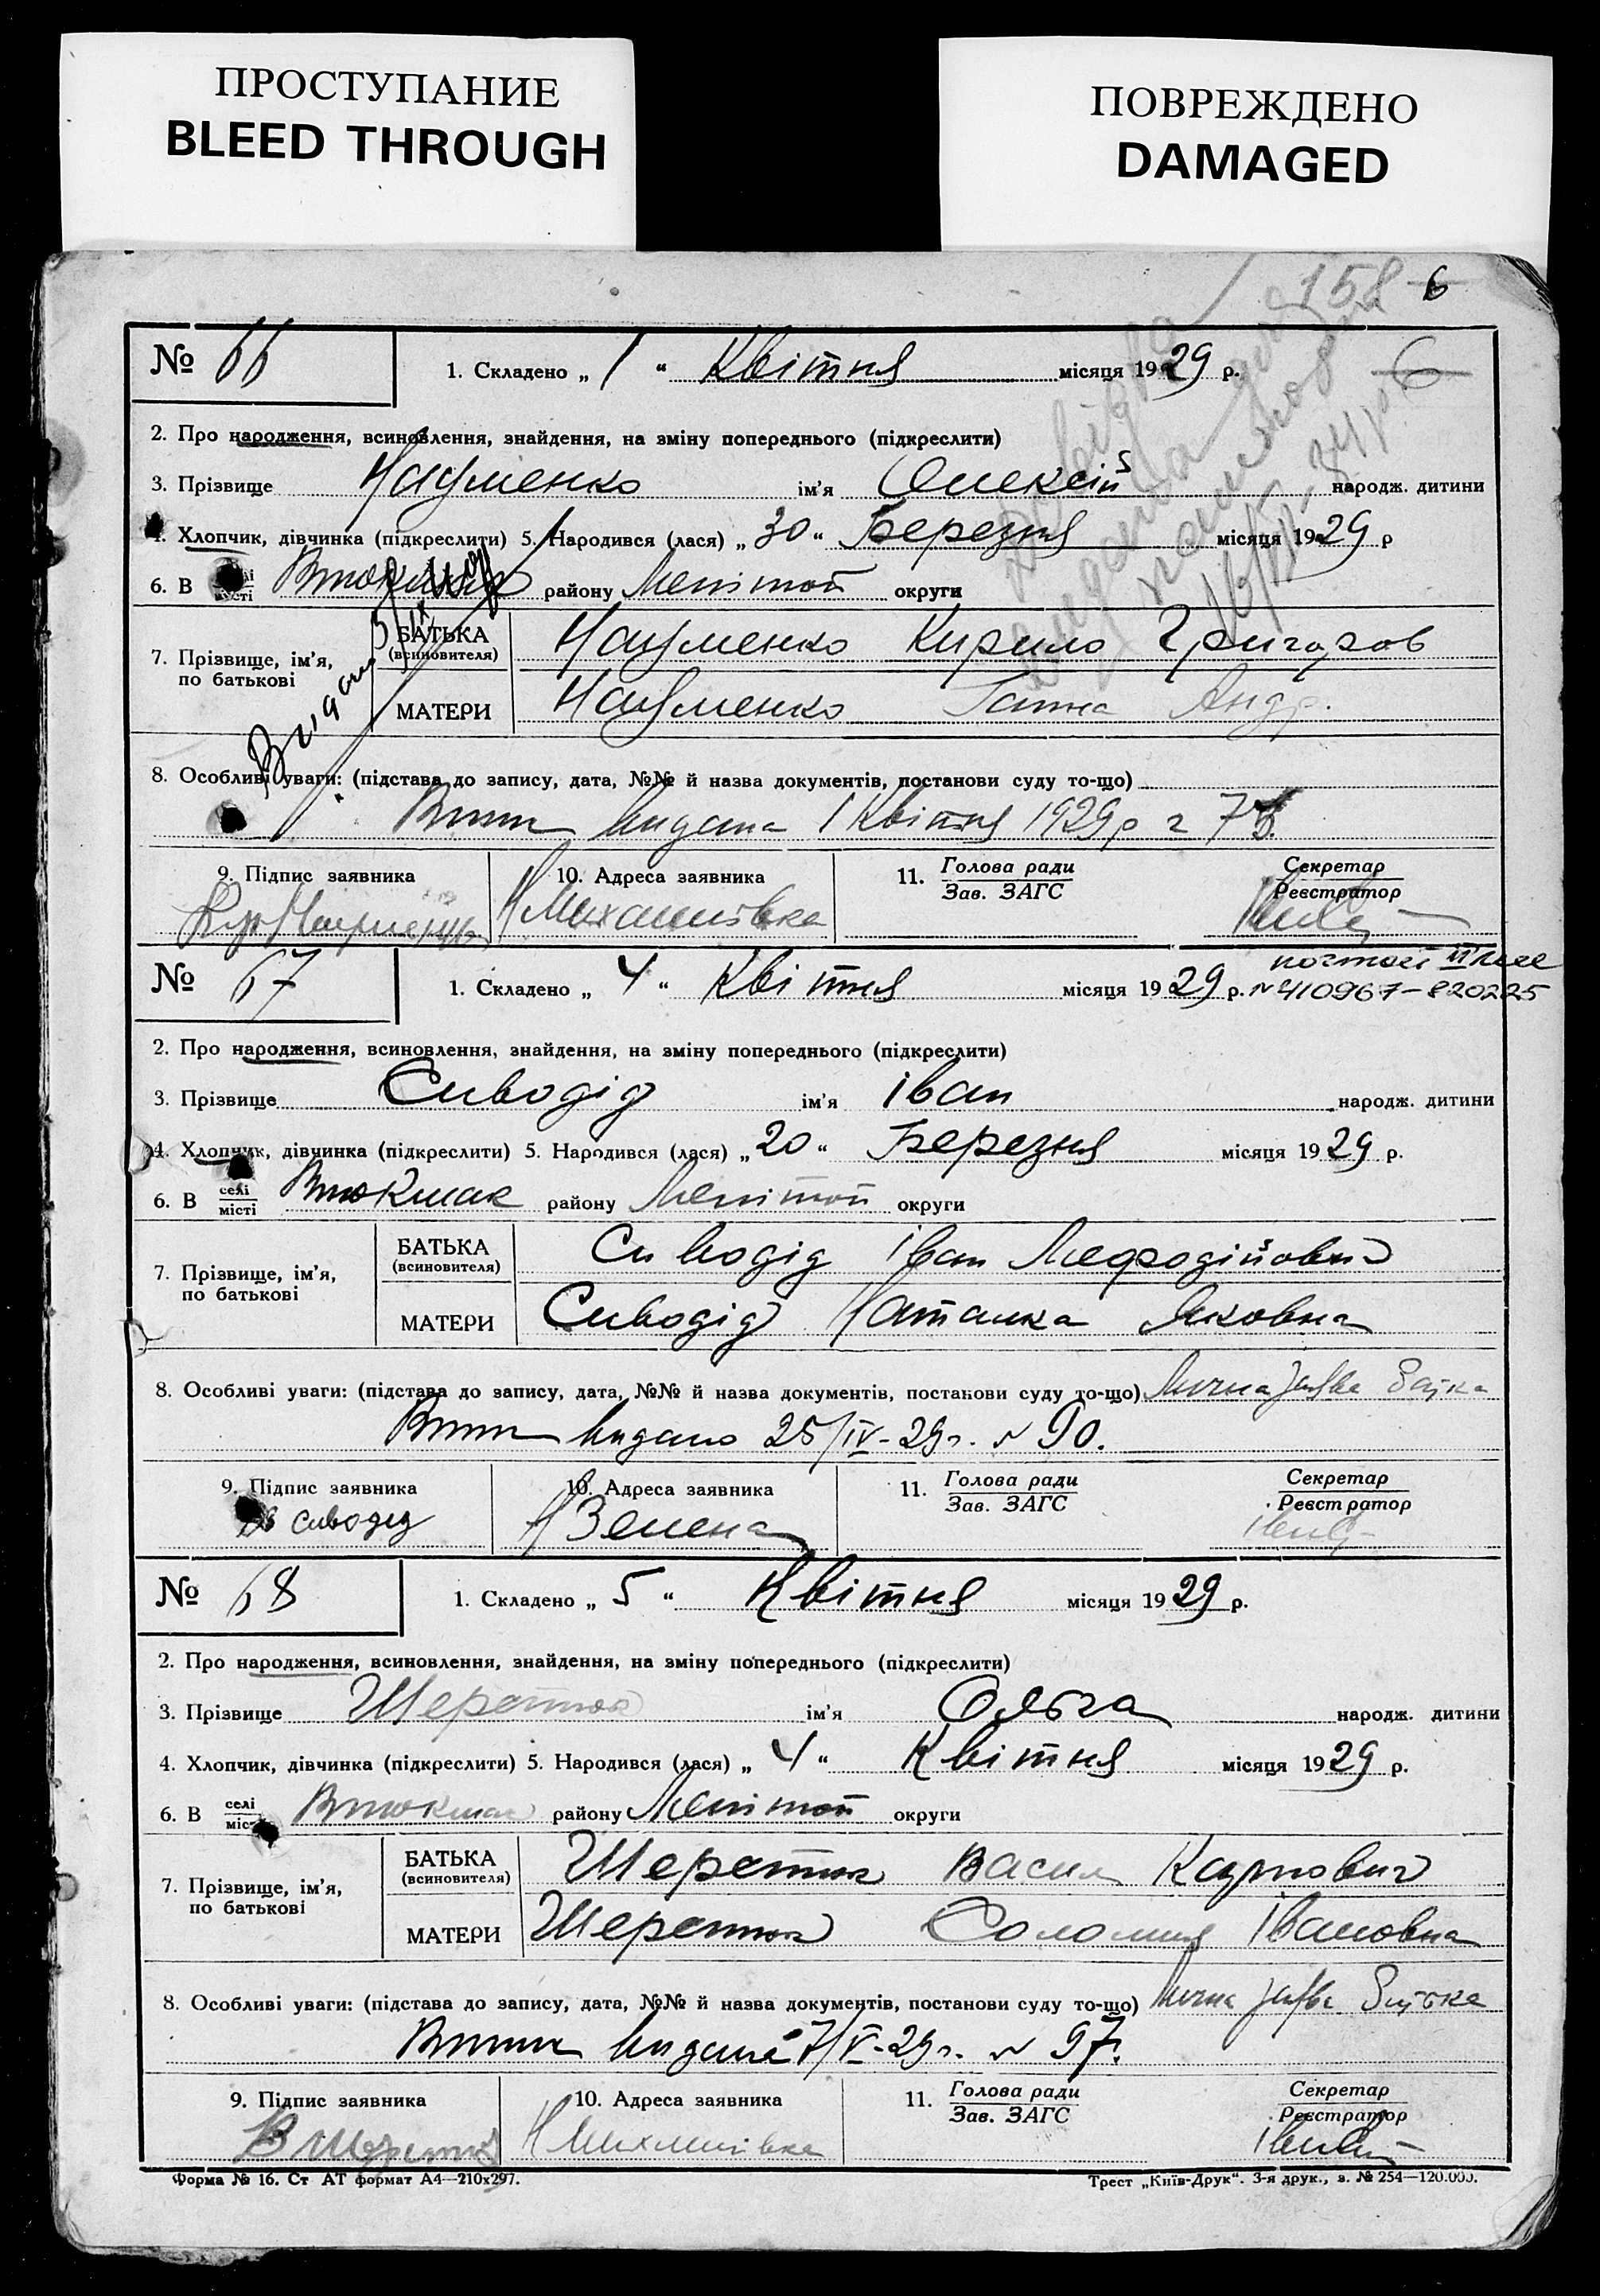 ПРОСТУПАНИЕ
BLEED THROUGH
ПОВРЕЖДЕНО
DAMAGED
158 6
№ 66 1. Складено „ 1 “ Квітня місяця 1929 р. 6
2. Про народження, всиновлення, знайдення, на зміну попереднього (підкреслити)
3. Прізвище Науменко ім'я Олексій народж. дитини
4. Хлопчик, дівчинка (підкреслити) 5. Народився (лася) „ 30 “ Березня місяця 1929 р
6. В місті району Мелітоп округи
7. Прізвище, ім'я, по батькові
БАТЬКА (всиновителя) Науменко Кирило Григоров
МАТЕРИ Науменко Ганна Андр.
8. Особливі уваги: (підстава до запису, дата, №№ й назва документів, постанови суду то-що)
видана 1 Квітня 1929р
9. Підпис заявника 10. Адреса заявника 11. Голова ради Секретар
Зав. ЗАГС Реєстратор
Н Михайлівка
№ 67 1. Складено „ 4 “ Квітня місяця 1929 р. № 410967-820225
2. Про народження, всиновлення, знайдення, на зміну попереднього (підкреслити)
3. Прізвище Сиводід ім'я Іван народж. дитини
4. Хлопчик, дівчинка (підкреслити) 5. Народився (лася) „ 20 “ Березня місяця 1929 р.
6. В селі місті Втокмак району Мелітоп округи
7. Прізвище, ім'я, по батькові
БАТЬКА (всиновителя) Сиводід Іван Мефодійович
МАТЕРИ Сиводід Наталка Яковна
8. Особливі уваги: (підстава до запису, дата, №№ й назва документів, постанови суду то-що) Лична заява батька
видано 25/IV-29г. № 90.
9. Підпис заявника 10. Адреса заявника 11. Голова ради Секретар
Зав. ЗАГС Реєстратор
Сиводид Н Зелена
№ 68 1. Складено „ 5 “ Квітня місяця 1929 р.
2. Про народження, всиновлення, знайдення, на зміну попереднього (підкреслити)
3. Прізвище ім'я Ольга народж. дитини
4. Хлопчик, дівчинка (підкреслити) 5. Народився (лася) „ 4 “ Квітня місяця 1929 р.
6. В селі міс Втокмак району Мелітоп округи
7. Прізвище, ім'я, по батькові
БАТЬКА (всиновителя) Василь Карпович
МАТЕРИ Соломия Івановна
8. Особливі уваги: (підстава до запису, дата, №№ й назва документів, постанови суду то-що) Лична заява батька
видана 7/V-29г. № 97.
9. Підпис заявника 10. Адреса заявника 11. Голова ради Секретар
Зав. ЗАГС Реєстратор
Н Михайлівка
Форма № 16. Ст АТ формат А4—210х297. Трест „Київ-Друк“. 3-я друк., з. № 254—120.000.